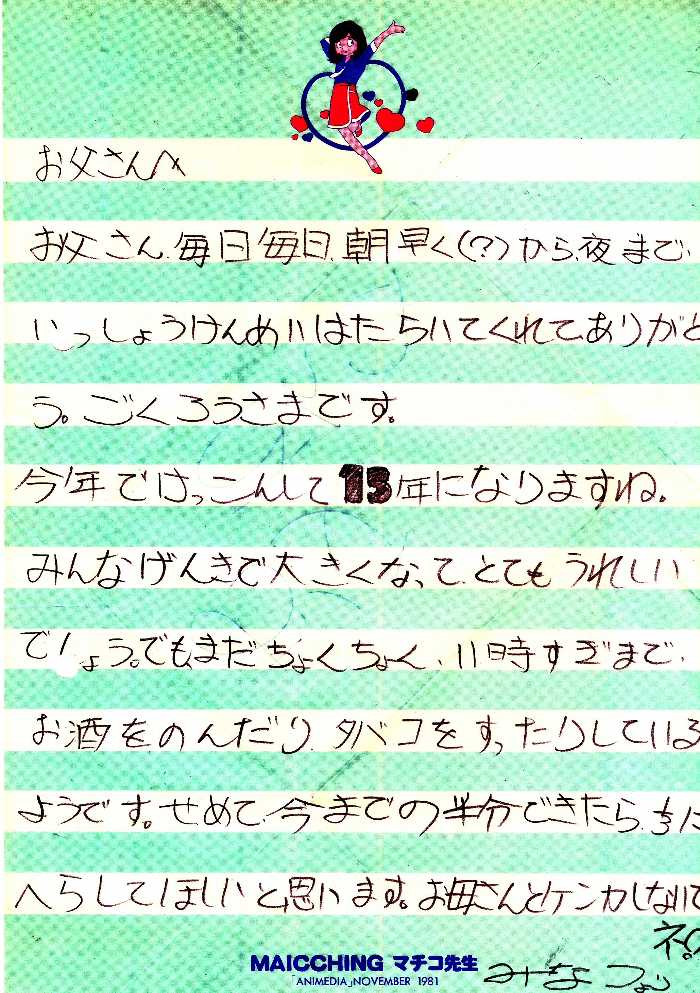 お父さんへ
お父さん、毎日毎日、朝早く(?)から、夜まで、
いっしょうけんめいはたらいてくれてありがと
う。ごくろうさまです。
今年でけっこんして15年になりますね。
みんなげんきで大きくなって、とてもうれしい
でしょう。でも、まだちょくちょく、11時すぎまで、
お酒をのんだり、タバコをすったりしている
ようです。せめて、今までの半分できたら、
へらしてほしいと思います。お母さんとケンカしないで
ネ。
みなより
MAICCHING マチコ先生
「ANIMEDIA」NOVEMBER 1981